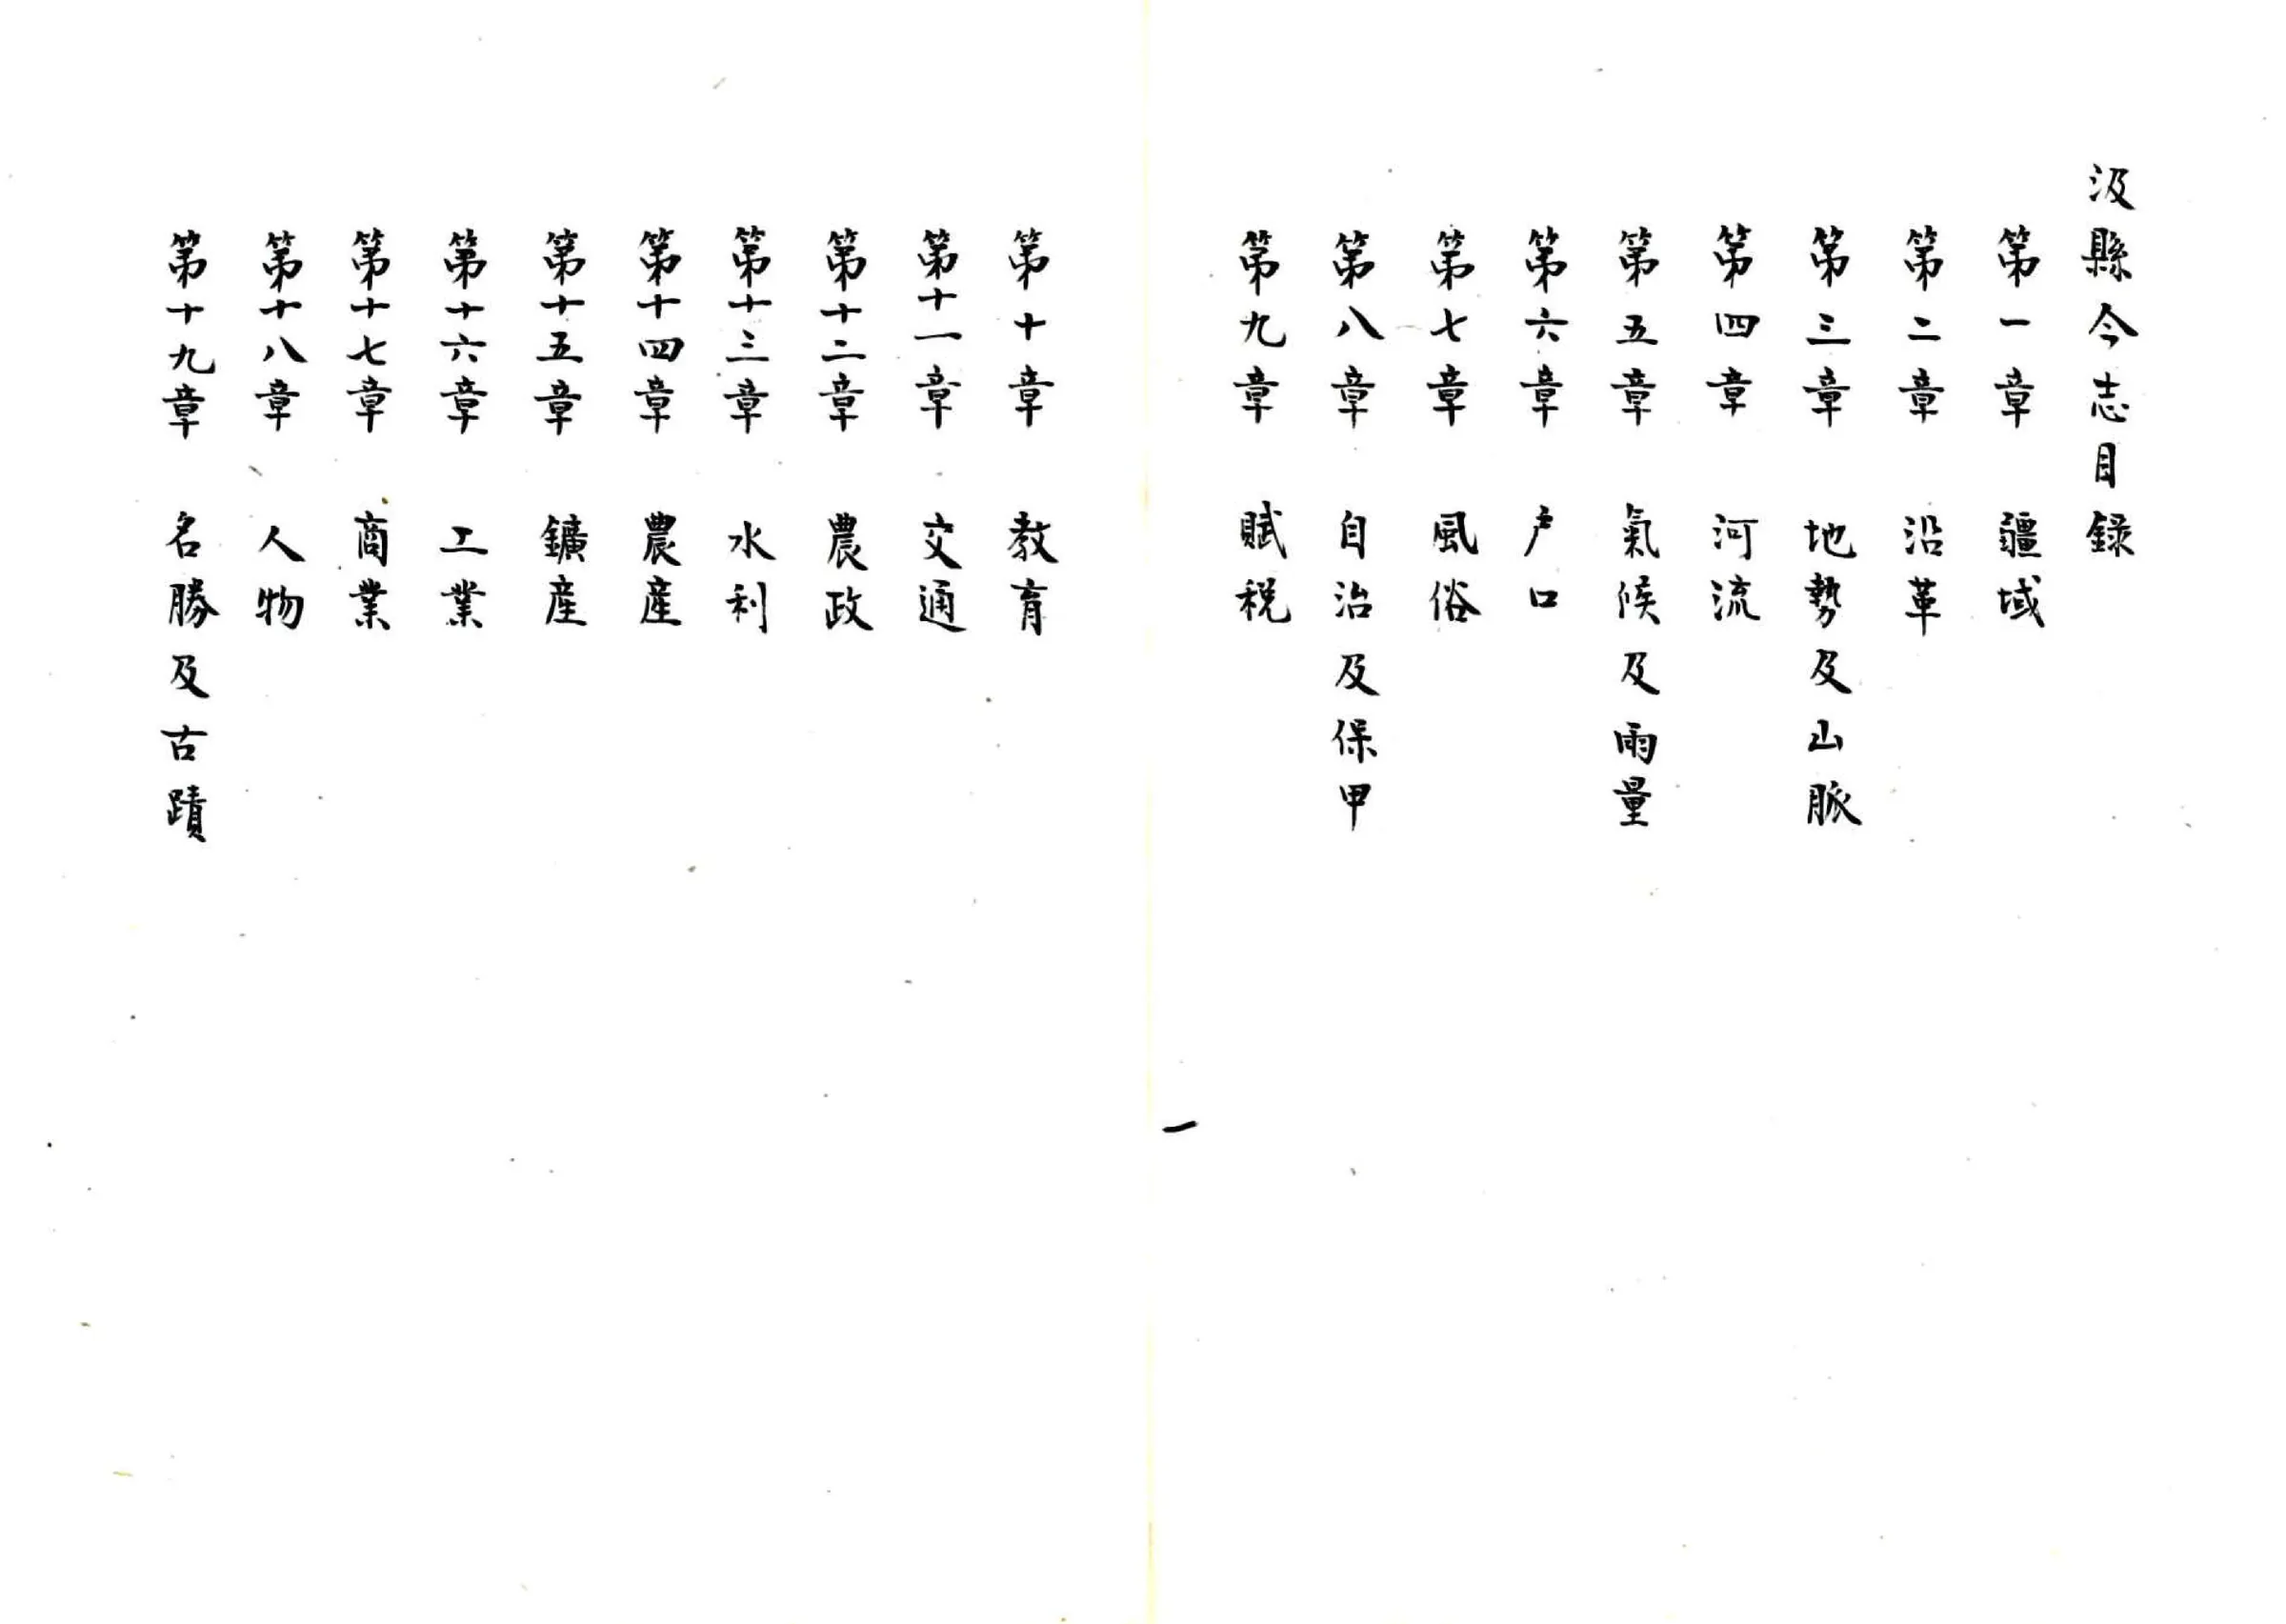 汲縣今志目録
第一章 疆域
第二章 沿革
第三章 地勢及山脈
第四章 河流
第五章 氣候及雨量
第六章 户口
第七章 風俗
第八章 自治及保甲
第九章 賦税
一
第十章 教育
第十一章 交通
第十二章 農政
第十三章 水利
第十四章 農產
第十五章 鑛產
第十六章 工業
第十七章 商業
第十八章 人物
第十九章 名勝及古蹟